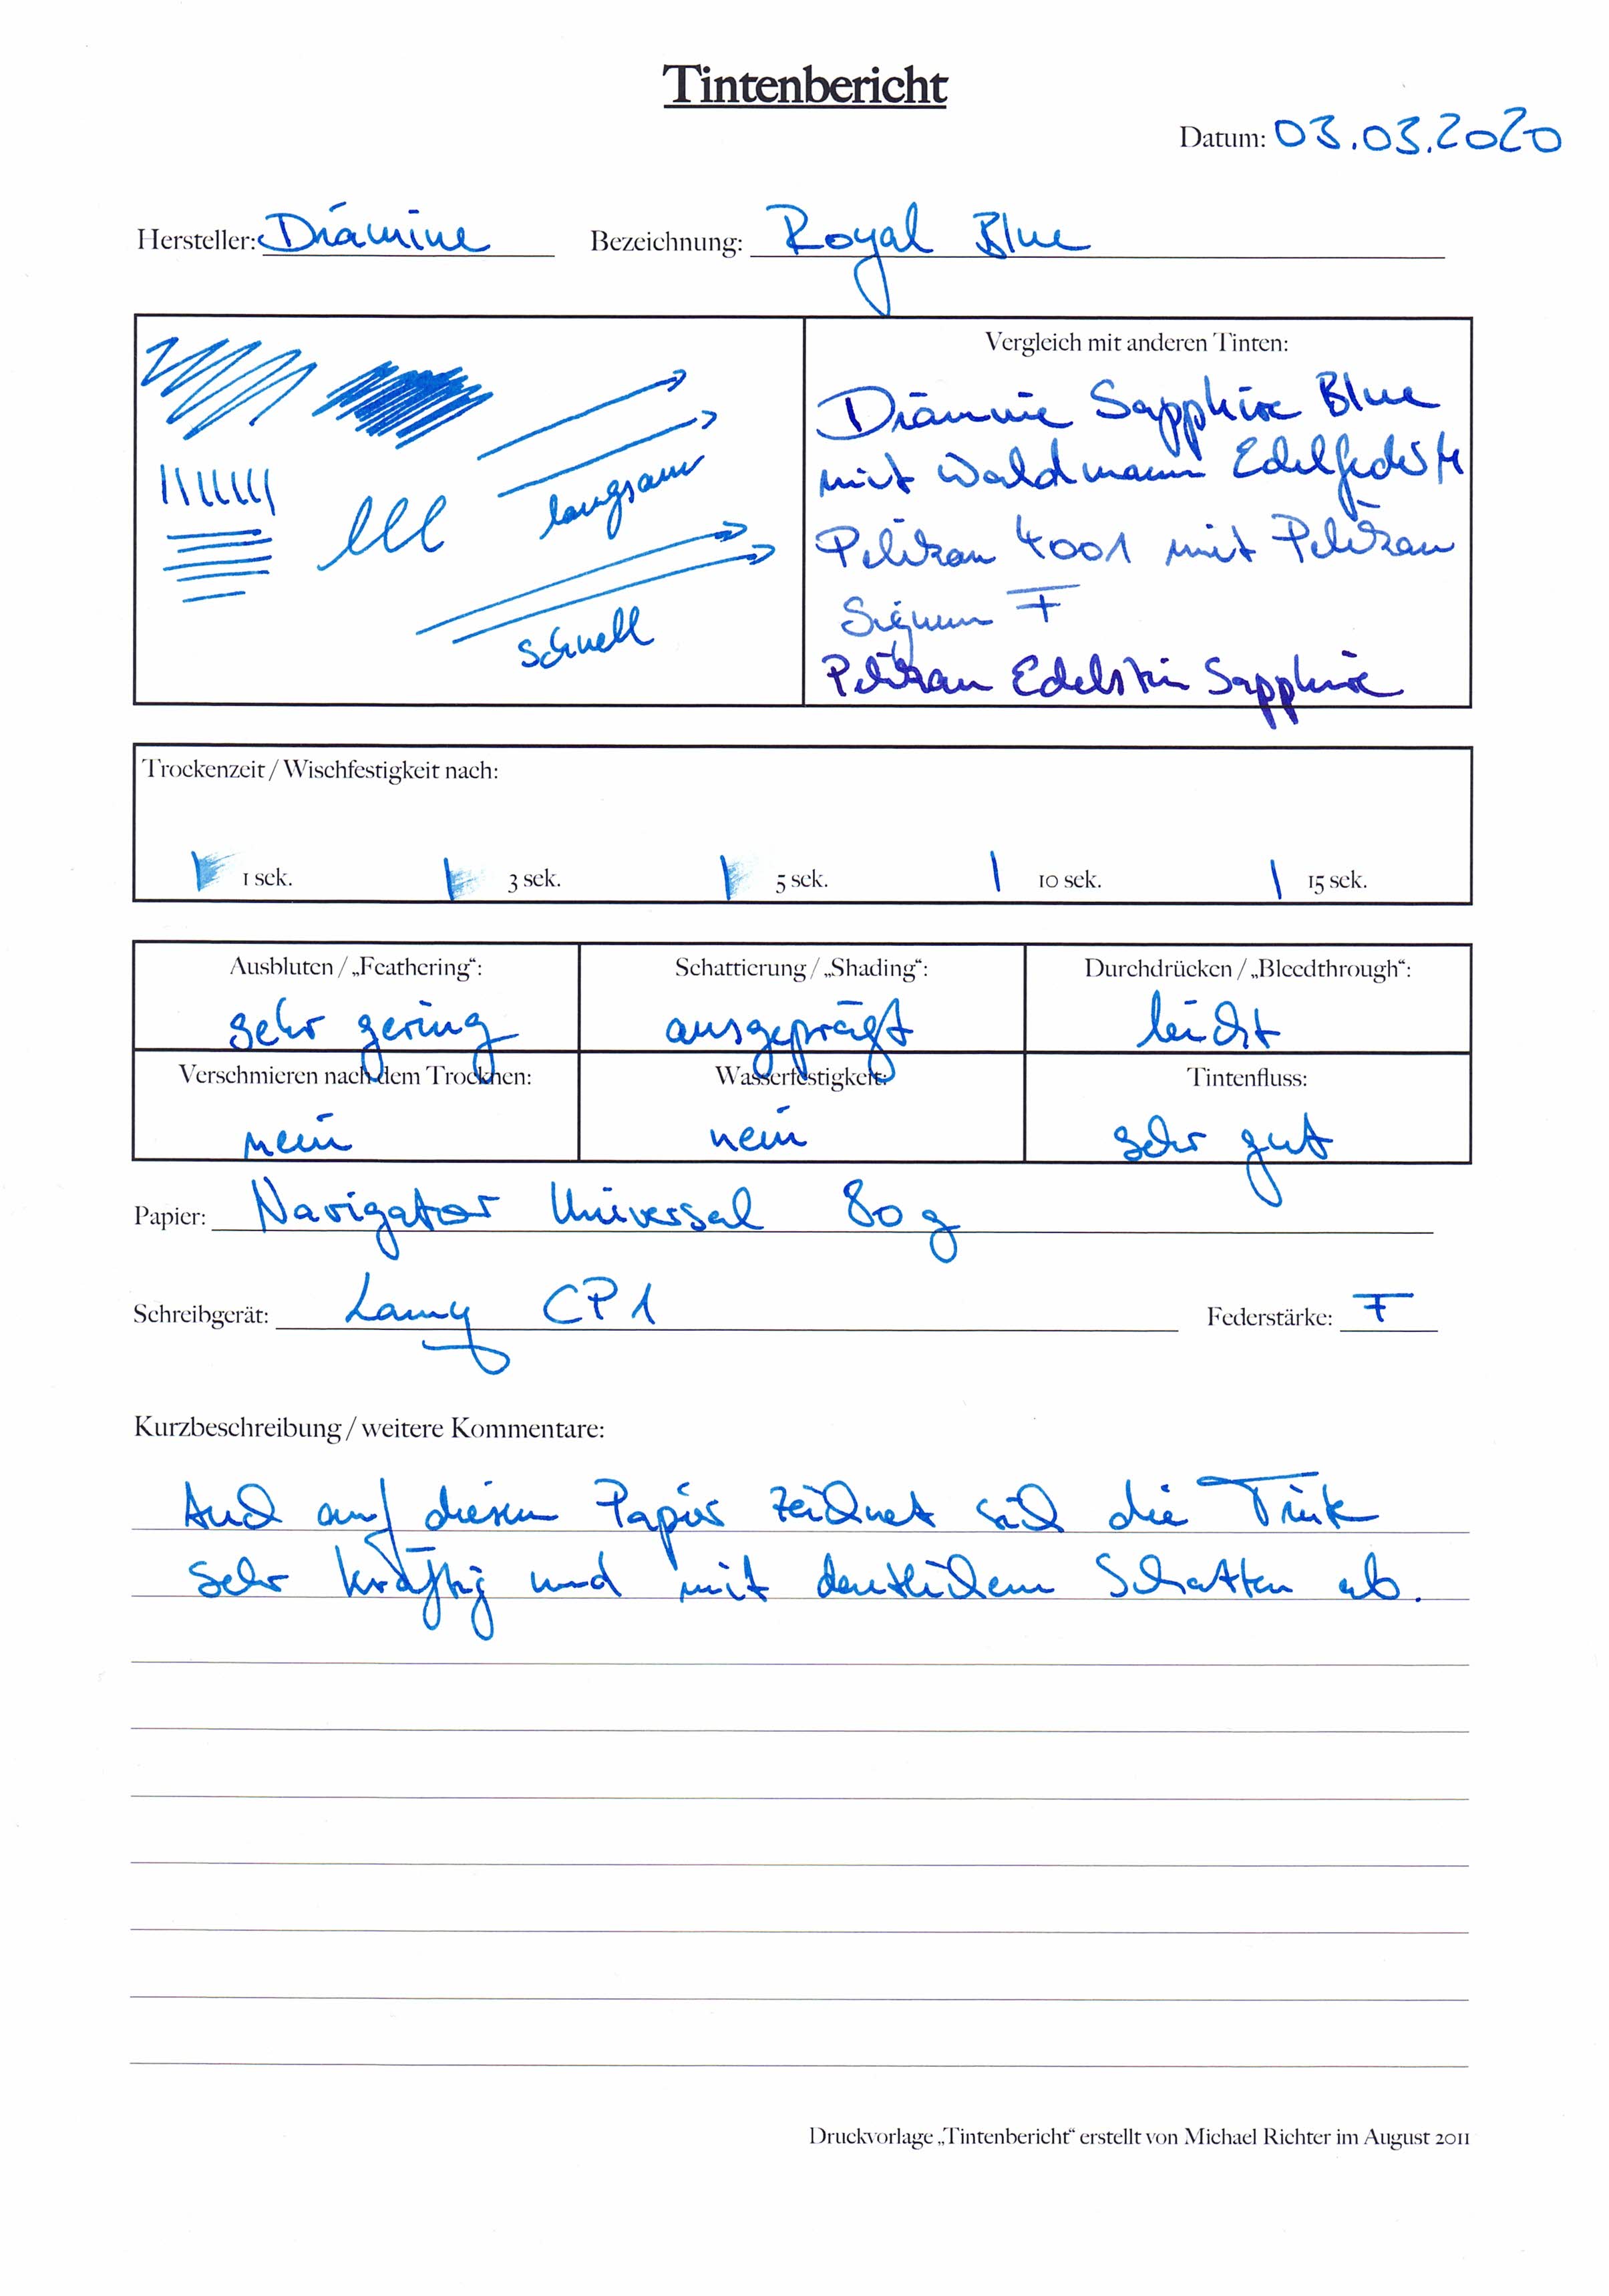 Tintenbericht
Datum: 03.03.2020
Hersteller: Diamine Bezeichnung: Royal Blue
Vergleich mit anderen Tinten:
Diamine Sapphire Blue
mit Waldmann Edelfeder M
Pelikan 4001 mit Pelikan
Signum F
Pelikan Edelstein Sapphire
langsam
schnell
Trockenzeit / Wischfestigkeit nach:
1 sek. 3 sek. 5 sek. 10 sek. 15 sek.
Ausbluten / „Feathering“: Schattierung / „Shading“: Durchdrücken / „Bleedthrough“:
sehr gering ausgeprägt leicht
Verschmieren nach dem Trocknen: Wasserfestigkeit: Tintenfluss:
nein nein sehr gut
Papier: Navigator Universal 80 g
Schreibgerät: Lamy CP1 Federstärke: F
Kurzbeschreibung / weitere Kommentare:
Auch auf diesem Papier zeichnet sich die Tinte
sehr kräftig und mit deutlichem Schatten ab.
Druckvorlage „Tintenbericht“ erstellt von Michael Richter im August 2011